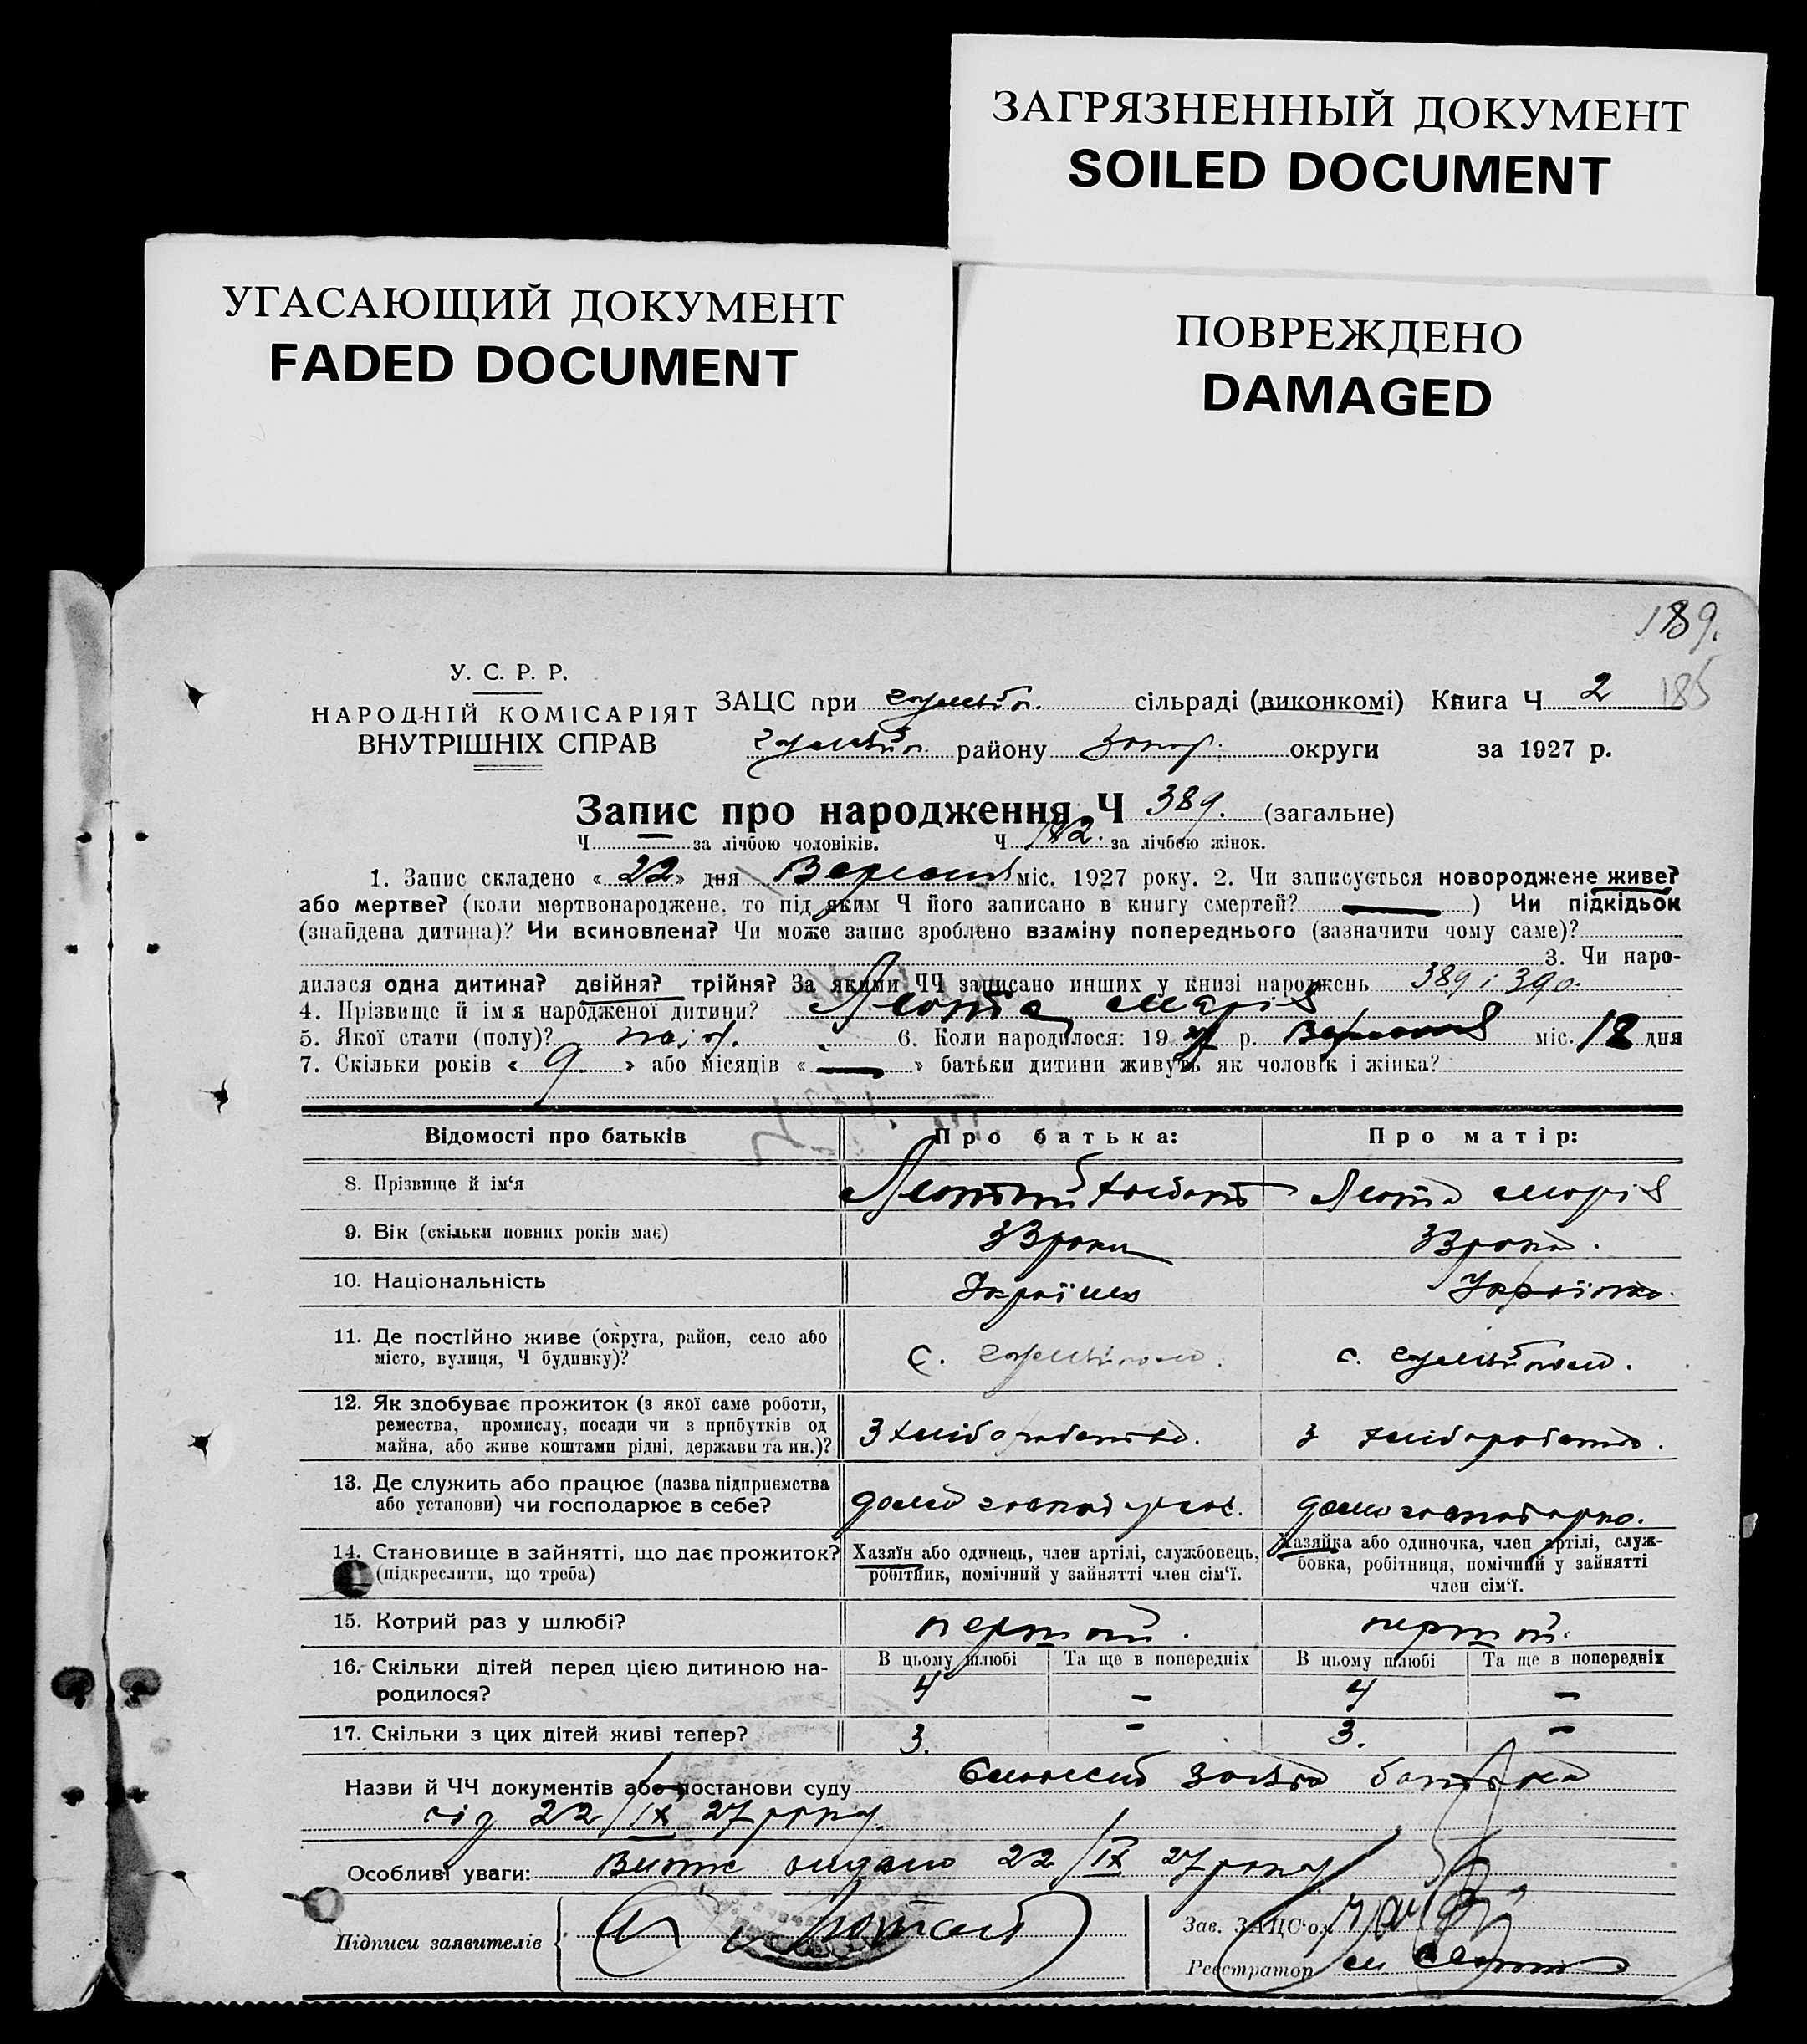 ЗАГРЯЗНЕННЫЙ ДОКУМЕНТ
SOILED DOCUMENT
УГАСАЮЩИЙ ДОКУМЕНТ
FADED DOCUMENT
ПОВРЕЖДЕНО
DAMAGED
189.
185
У. С. Р. Р.
НАРОДНІЙ КОМІСАРІЯТ
ВНУТРІШНІХ СПРАВ
ЗАЦС при сільраді (виконкомі) Книга Ч 2
району Запор. округи за 1927 р.
Запис про народження Ч 389. (загальне)
Ч — за лічбою чоловіків. Ч 182. за лічбою жінок.
1. Запис складено « 22 » дня Вересня міс. 1927 року. 2. Чи записується новороджене живе?
або мертве? (коли мертвонароджене, то під яким Ч його записано в книгу смертей? ) Чи підкідьок
(знайдена дитина)? Чи всиновлена? Чи може запис зроблено взаміну попереднього (зазначити чому саме)?
3. Чи наро-
дилася одна дитина? двійня? трійня? За якими ЧЧ записано инших у книзі народжень 389 і 390.
4. Прізвище й ім'я народженої дитини? Люта Марія
5. Якої стати (полу)? 6. Коли народилося: 19 27 р. Вересня міс. 18 дня
7. Скільки років « 9 » або місяців « — » батьки дитини живуть як чоловік і жінка?
Відомості про батьків
Про батька:
Про матір:
8. Прізвище й ім'я
Лютий
Люта Марія
9. Вік (скільки повних років має)
33 роки
33 роки.
10. Національність
Українець
Українка.
11. Де постійно живе (округа, район, село або
місто, вулиця, Ч будинку)?
с.
с.
12. Як здобуває прожиток (з якої саме роботи,
ремества, промислу, посади чи з прибутків од
майна, або живе коштами рідні, держави та ин.)?
З хліборобства.
з хліборобства.
13. Де служить або працює (назва підприємства
або установи) чи господарює в себе?
дома господарює.
дома господарює.
14. Становище в зайнятті, що дає прожиток?
(підкреслити, що треба)
Хазяїн або одинець, член артілі, службовець,
робітник, помічний у зайнятті член сім'ї.
Хазяйка або одиночка, член артілі, служ-
бовка, робітниця, помічний у зайнятті
член сім'ї.
15. Котрий раз у шлюбі?
первий.
первий.
16. Скільки дітей перед цією дитиною на-
родилося?
В цьому шлюбі
Та ще в попередніх
В цьому шлюбі
Та ще в попередніх
4
—
4
—
17. Скільки з цих дітей живі тепер?
3.
—
3.
—
Назви й ЧЧ документів або постанови суду заява батька
від 22/IX 27 року.
Особливі уваги: Витяг видано 22/IX 27 року
Підписи заявителів
Зав. ЗАЦС'ом
Реєстратор